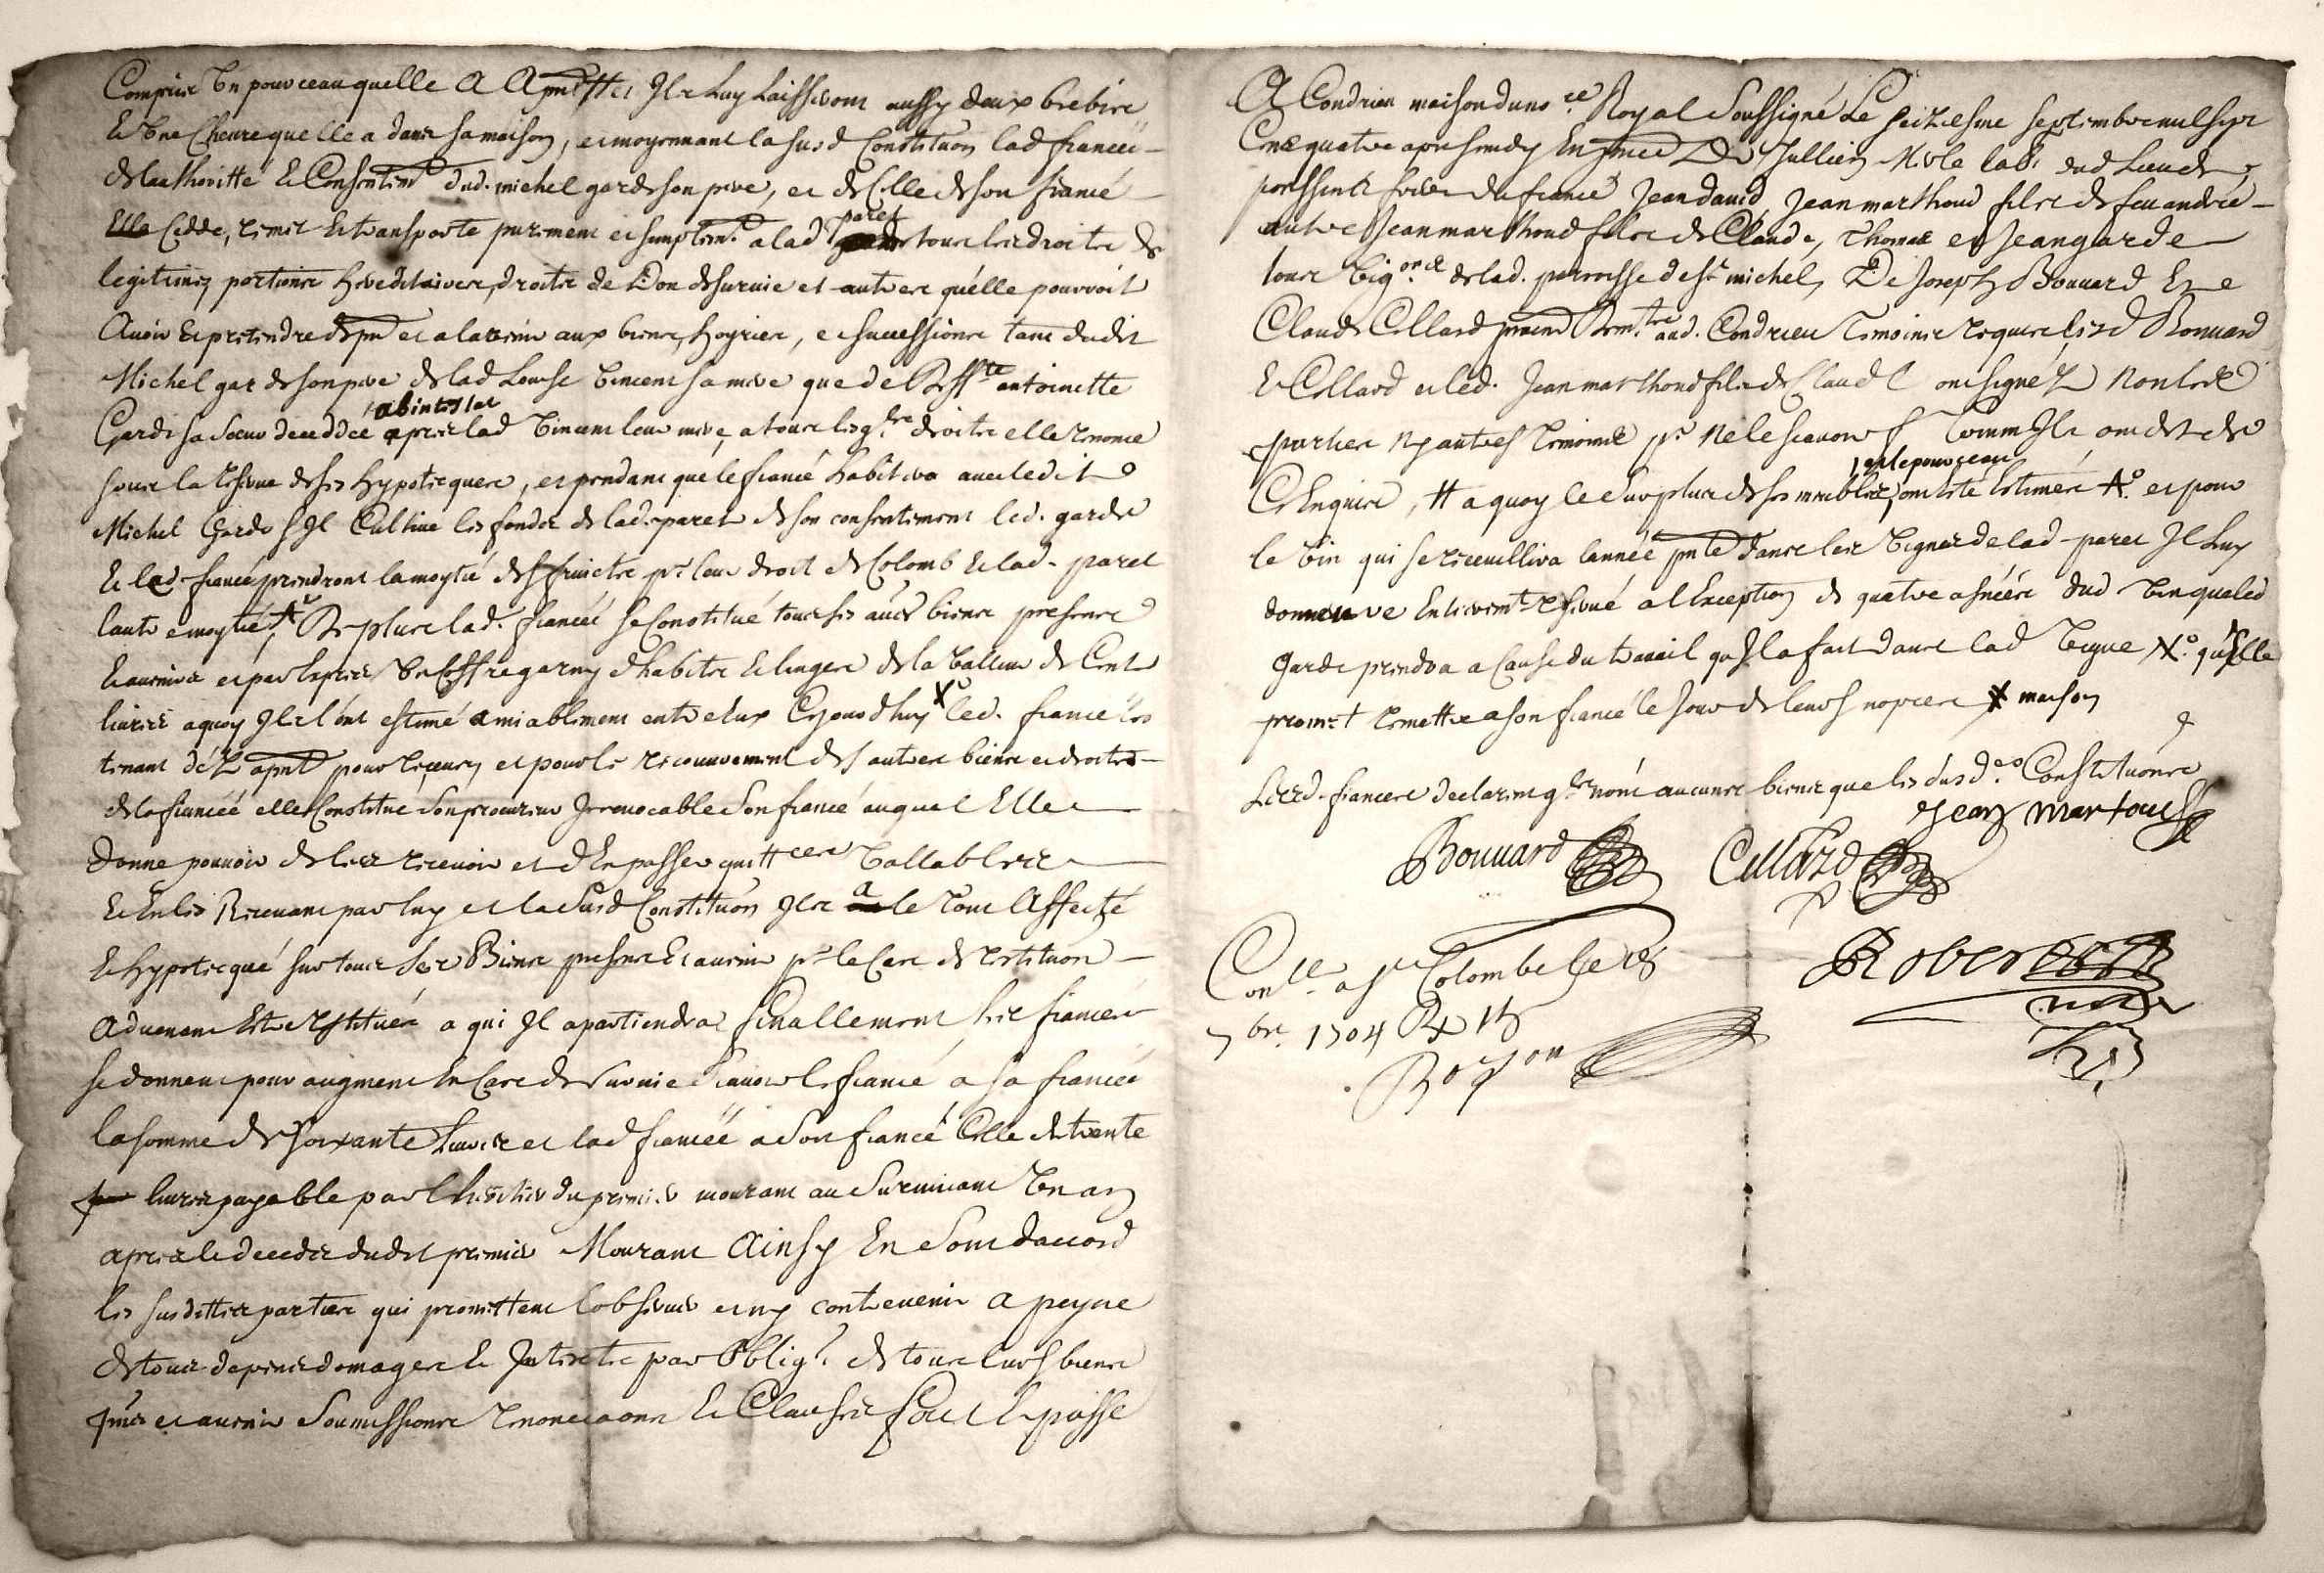 Comprise Un pourceau quelle A Ilz Luy Laisseront aussy deux brebires
Et Une Cheure quelle a dans sa maison, et moyennant la susd Constituon lad fiancée
de lauthoritté Et Consentemt dud. michel garde son pere, et de Celle de son fiancé
Elle Cedde, remet Et transporte purement et simplemt. a lad paret tous les droits de
legitimes portions hereditaires, droits de Don de survie et autres qu'elle pouvoit
Auoir Et pretendre de pnt et a laduenir aux biens, hoyries, et successions tant dudit
Michel garde son pere de lad Louise Vincent sa mere que de antoinette
Garde sa soeur deceddée abintestat apres lad Vincent leur mere, a tous lesq. droits elle renonce
sous la reserve de ses hypotecques, et pendant que le fiancé habitera auec ledit
Michel Garde S Il Cultive les fonds de lad. paret de son consentement led. garde
Et led. fiancé prendront la moytié des fruicts pr. leur droit de Colomb Et lad. paret
lautre moytié, De plus lad. fiancée se Constitué tous ses aues biens presens
Et auenirs et par Expres Un Coffre garny d'habits Et linges de la Valleur de Cent
liures a quoy Ilz l'ont estimé amiablement entre Eux Cejourdhuy led. fiance les
tenant déz apnt pour receus, et pour le recouurement des autres biens et droits
de la fiancée elle Constitué Son procureur Irreuocable Son fiancé auquel Elle
donne pouuoir de les receuoir et d'En passer quittces Vallables
Et En les Receuant par luy et la Susd Constituon Ilz a le tout Affecté
Et hypotecqué sur tous Ses Biens presens Et auenir pr le Cas de restituon
Aduenant Estre restitués a qui Il apartiendra finallement les fiancés
se donnent pour augment En Cas de Suruie Scauoir le fiancé a sa fiancée
la somme de soixante Liures et lad fiancée a Son fiancé Celle de trente
liures payable par lheritier du premier mourant au Suruiuant Un an
apres le decedz dudit premier Mourant Ainsy En Sont daccord
les susdittes parties qui promettent lobseruer et ny contreuenir a peyne
de tous depens domages Et Interets par Obligo. de tous leurs biens
pnts et auenir Soumissions renonciaons Et Clauses fait Et passé
A Condrieu maison du nore Royal Soussigné Le seiziesme septembre mil sept
Cens quatre apres midy En pnce De Jullien Mole lab. dud Lieu de
Jean dauid, Jean marthoud fils de feu andrée
autre Jean marthoud fils de Claude, Thomas et Jean garde
tous Vigons de lad. parroisse de St michel, De Joseph Bouuard Et
Claude Collard aud. Condrieu Temoins requis lesd Bouuard
Et Collard et led. Jean marthoud fils de Claude ont signéz Non les
parties ny autres temoins pr ne le scauoir Comm Ils ont dit de
Ce Enquis, # a quoy le Surplus de ses meubles, et le pourceau ont Esté Estimés et pour
le Vin qui se receuillira lannée pnte dans les Vignes de lad. paret Il Luy
demeure Entieremt. reserué a l Exception de quatre asnées dud Vin que led
garde prendra a Cause du trauail qu Il a fait dans lad Vigne X. qu'Elle
promet remettre a son fiancé le jour de leurs nopces X maison
Lesd. fiancés declarent nont aucuns biens que les susd.es Constitutions
Jean martoud
Bouuard Collard
Conlle a ste Colombe le 28
7bre. 1704 R 15
Bozon
Robert
nore